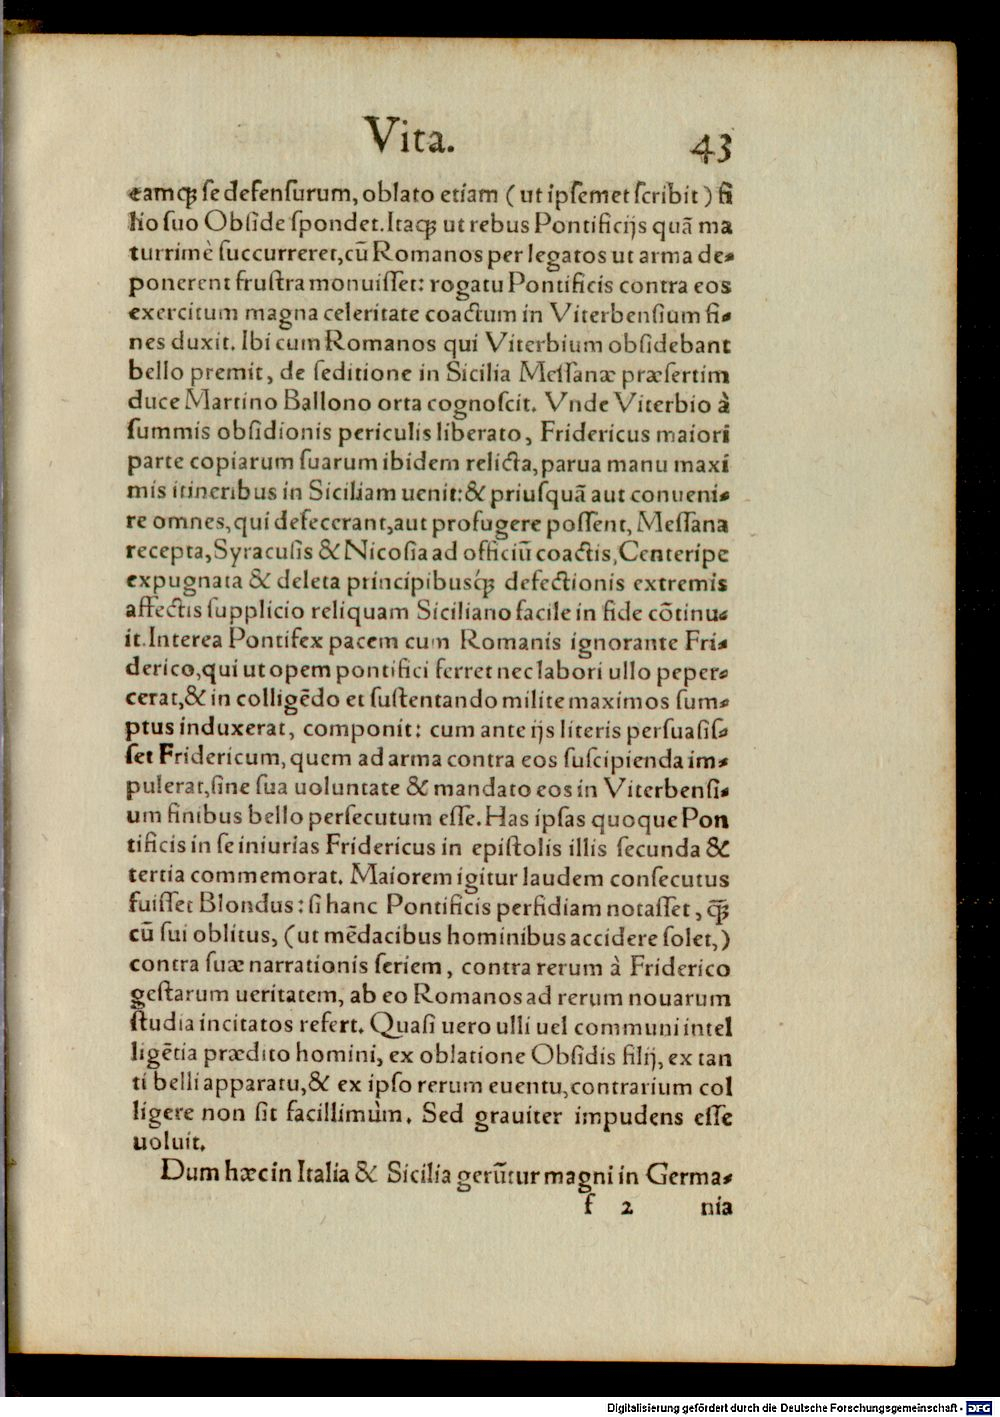 Vita. 43
eamqꝫ ſe defenſurum, oblato etiam ( ut ipſemet ſcribit ) fi
lio ſuo Obſide ſpondet. Itaqꝫ ut rebus Pontificijs quã ma
turrimè ſuccurreret, cũ Romanos per legatos ut arma de⸗
ponerent fruſtra monuiſſet: rogatu Pontificis contra eos
exercitum magna celeritate coactum in Viterbenſium fi⸗
nes duxit. Ibi cum Romanos qui Viterbium obſidebant
bello premit, de ſeditione in Sicilia Meſſanæ præſertim
duce Martino Ballono orta cognoſcit. Vnde Viterbio à
ſummis obſidionis periculis liberato, Fridericus maiori
parte copiarum ſuarum ibidem relicta, parua manu maxi
mis itineribus in Siciliam uenit: & priuſquã aut conueni⸗
re omnes, qui defecerant, aut profugere poſſent, Meſſana
recepta, Syracuſis & Nicoſia ad officiũ coactis, Centeripe
expugnata & deleta principibusqꝫ defectionis extremis
affectis ſupplicio reliquam Siciliano facile in fide cõtinu⸗
it. Interea Pontifex pacem cum Romanis ignorante Fri⸗
derico, qui ut opem pontifici ferret nec labori ullo peper⸗
cerat, & in colligẽdo et ſuſtentando milite maximos ſum⸗
ptus induxerat, componit: cum ante ijs literis perſuaſiſ⸗
ſet Fridericum, quem ad arma contra eos ſuſcipienda im⸗
pulerat, ſine ſua uoluntate & mandato eos in Viterbenſi⸗
um finibus bello perſecutum eſſe. Has ipſas quoque Pon
tificis in ſe iniurias Fridericus in epiſtolis illis ſecunda &
tertia commemorat. Maiorem igitur laudem conſecutus
fuiſſet Blondus: ſi hanc Pontificis perfidiam notaſſet, q̃ꝫ
cũ ſui oblitus, (ut mẽdacibus hominibus accidere ſolet,)
contra ſuæ narrationis ſeriem, contra rerum à Friderico
geſtarum ueritatem, ab eo Romanos ad rerum nouarum
ſtudia incitatos refert. Quaſi uero ulli uel communi intel
ligẽtia prædito homini, ex oblatione Obſidis filij, ex tan
ti belli apparatu, & ex ipſo rerum euentu, contrarium col
ligere non ſit facillimùm. Sed grauiter impudens eſſe
uoluit.
Dum hæc in Italia & Sicilia gerũtur magni in Germa⸗
f 2 nia
Digitalisierung gefördert durch die Deutsche Forschungsgemeinschaft - DFG